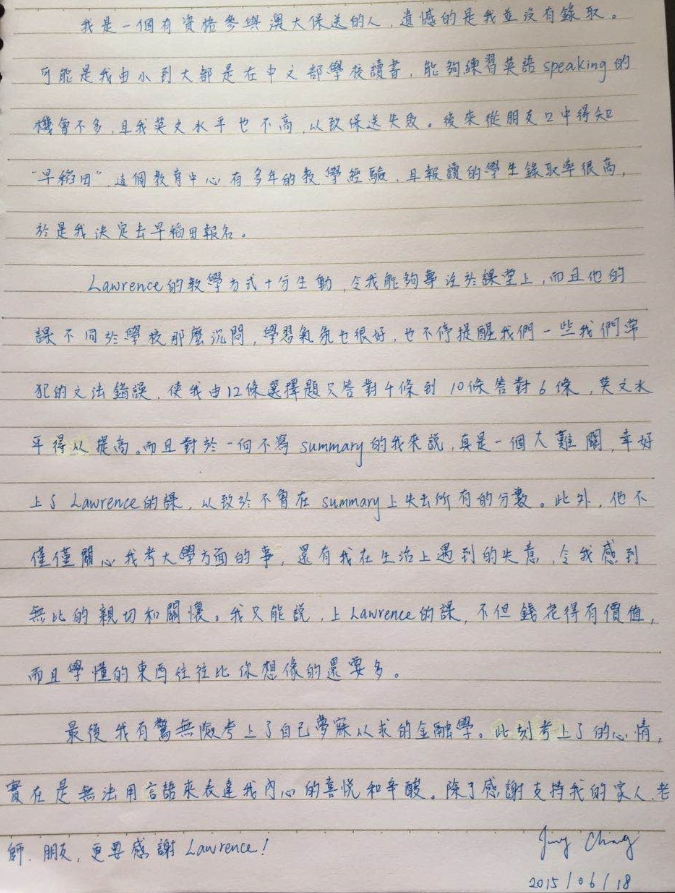 我是一個有資格參與澳大保送的人，遺憾的是我並沒有錄取。
可能是我由小到大都是在中文部學校讀書，能夠練習英語speaking的
機會不多，且我英文水平也不高，以致保送失敗。後來從朋友口中得知
"早稻田"這個教育中心有多年的教學經驗，且報讀的學生錄取率很高，
於是我決定去早稻田報名。
Lawrence的教學方式十分生動，令我能夠專注於課堂上，而且他的
課不同於學校那麼沉悶，學習氣氛也很好，也不停提醒我們一些我們常
犯的文法錯誤，使我由12條選擇題只答對4條到10條答對6條，英文水
平得以提高。而且對於一向不寫summary的我來説，真是一個大難關，幸好
上了Lawrence的課，以致於不會在summary上失去所有的分數。此外，他不
僅僅關心我考大學方面的事，還有我在生活上遇到的失意，令我感到
無比的親切和關懷。我只能說，上Lawrence的課，不但錢花得有價值，
而且學懂的東西往往比你想像的還要多。
最後我有驚無險考上了自己夢寐以求的金融學。此刻考上了的心情，
實在是無法用言語來表達我內心的喜悅和辛酸。除了感謝支持我的家人、老
師、朋友，更要感謝Lawrence！
2015/06/18